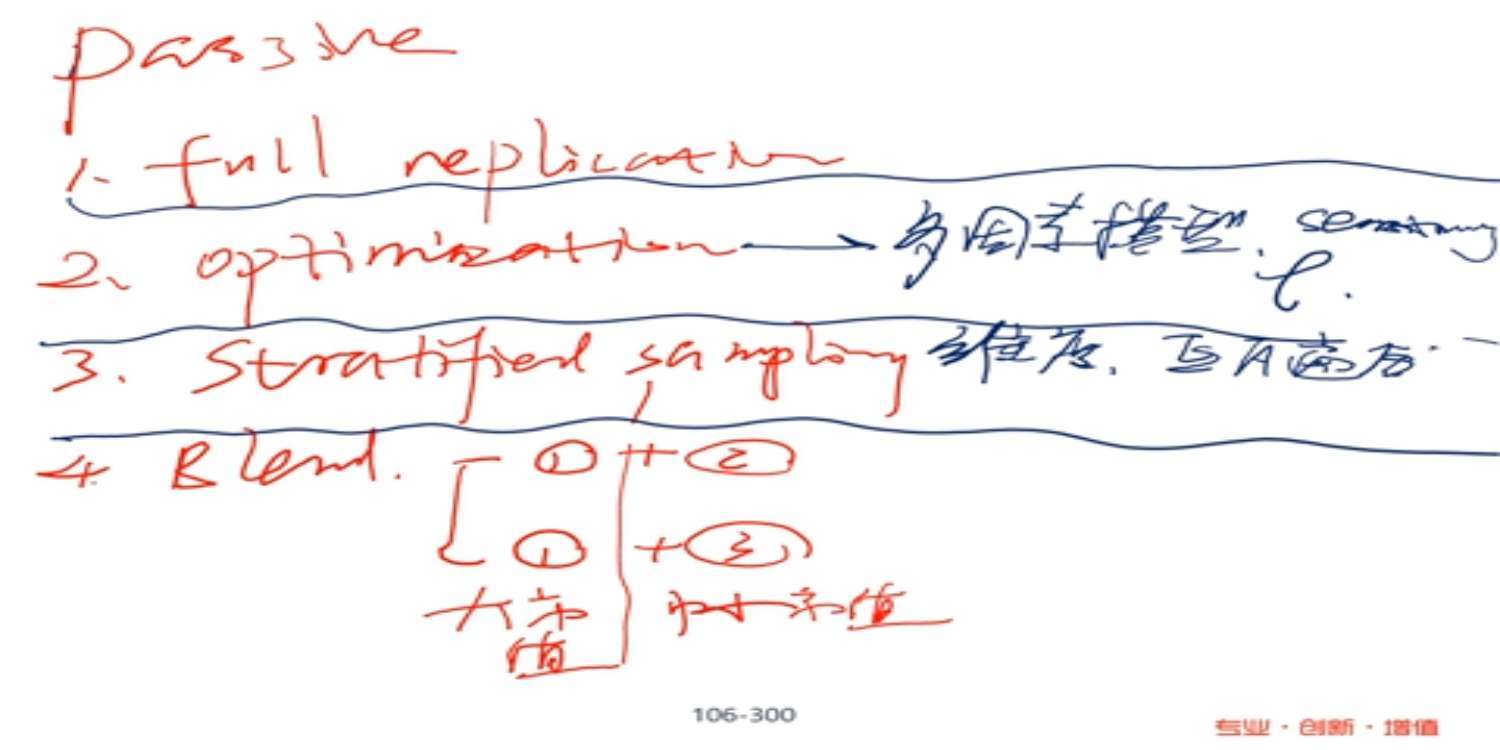 passive
1. full replication
2、optimization → 多因素模型. sensitivity ρ.
3. Stratified sampling 多维度. 互斥
4. Blend. ① + ②
① + ③
大市值 中小市值
106-300
专业·创新·增值